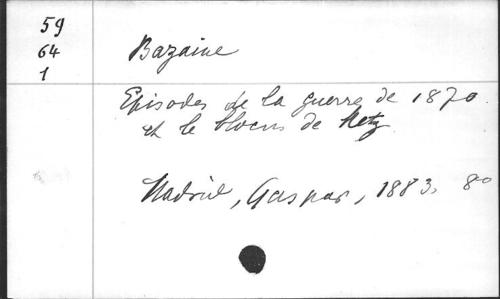 59
64
1
Bazaine
Episodes de la guerre de 1870
et le blocus de Metz
Madrid, Gaspar, 1883, 8º